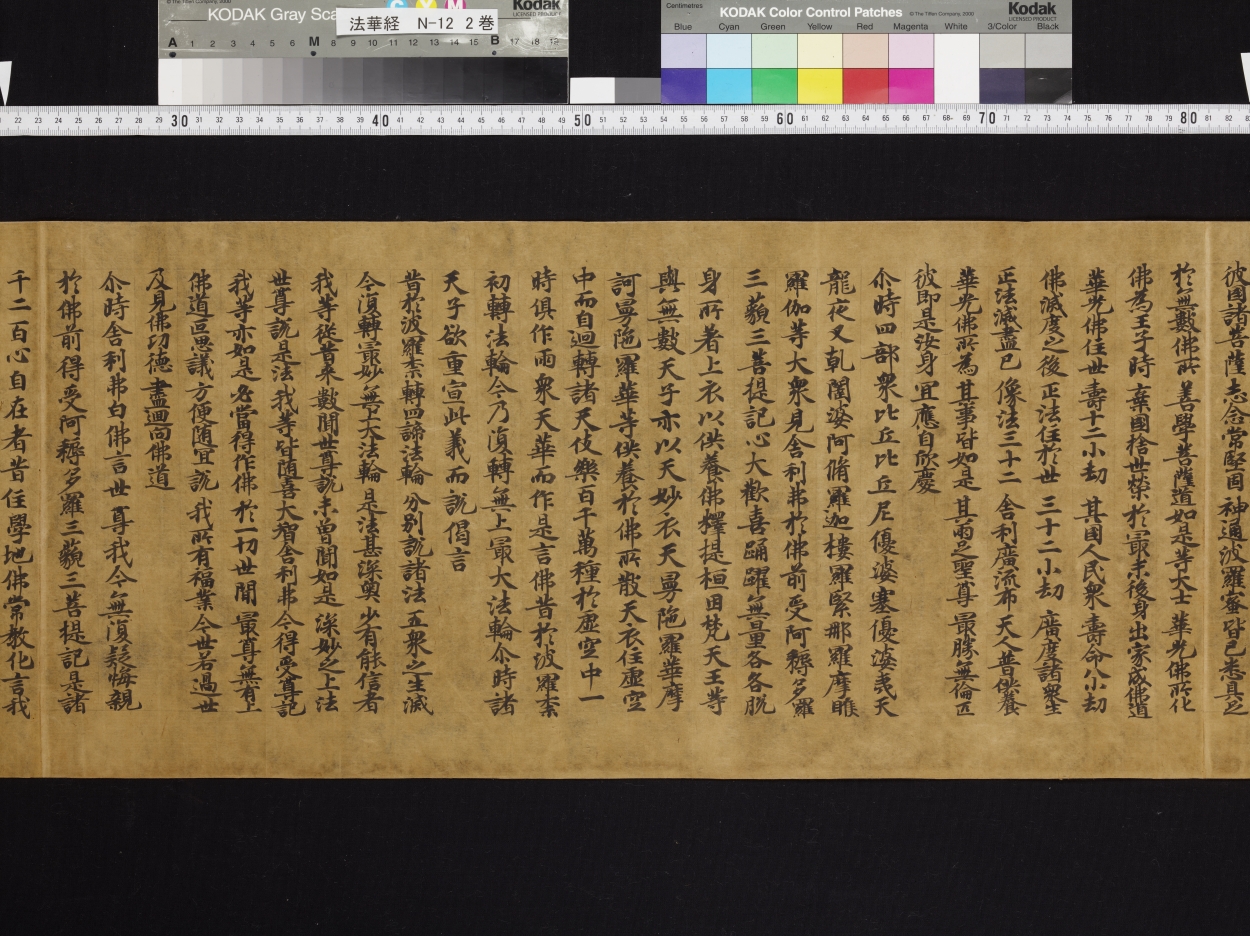 © The Tiffen Company, 2000
KODAK Gray Sca
C Y M
Kodak
LICENSED PRODUCT
法華経 N-12 2巻
A 1 2 3 4 5 6 M 8 9 10 11 12 13 14 15 B 17 18 19
Centimetres
KODAK Color Control Patches
© The Tiffen Company, 2000
Kodak
LICENSED PRODUCT
Blue Cyan Green Yellow Red Magenta White 3/Color Black
22 23 24 25 26 27 28 29 30 31 32 33 34 35 36 37 38 39 40 41 42 43 44 45 46 47 48 49 50 51 52 53 54 55 56 57 58 59 60 61 62 63 64 65 66 67 68 69 70 71 72 73 74 75 76 77 78 79 80 81 82
彼國諸菩薩 志念常堅固 神通波羅蜜 皆已悉具足
於無數佛所 善學菩薩道 如是等大士 華光佛所化
佛為王子時 棄國捨世榮 於最末後身 出家成佛道
華光佛住世 壽十二小劫 其國人民衆 壽命八小劫
佛滅度之後 正法住於世 三十二小劫 廣度諸衆生
正法滅盡已 像法三十二 舍利廣流布 天人普供養
華光佛所為 其事皆如是 其兩足聖尊 最勝無倫匹
彼即是汝身 宜應自欣慶
尒時四部衆比丘比丘尼優婆塞優婆夷天
龍夜叉乹闥婆阿脩羅迦樓羅緊那羅摩睺
羅伽等大衆見舍利弗於佛前受阿耨多羅
三藐三菩提記心大歡喜踊躍無量各各脫
身所著上衣以供養佛釋提桓因梵天王等
與無數天子亦以天妙衣天曼陁羅華摩
訶曼陁羅華等供養於佛所散天衣住虛空
中而自迴轉諸天伎樂百千萬種於虛空中一
時俱作雨衆天華而作是言佛昔於波羅柰
初轉法輪今乃復轉無上最大法輪尒時諸
天子欲重宣此義而說偈言
昔於波羅柰 轉四諦法輪 分別說諸法 五衆之生滅
今復轉最妙 無上大法輪 是法甚深奧 少有能信者
我等從昔來 數聞世尊說 未曾聞如是 深妙之上法
世尊說是法 我等皆随喜 大智舍利弗 今得受尊記
我等亦如是 必當得作佛 於一切世間 最尊無有上
佛道叵思議 方便随宜說 我所有福業 今世若過世
及見佛功德 盡迴向佛道
尒時舍利弗白佛言世尊我今無復疑悔親
於佛前得受阿耨多羅三藐三菩提記是諸
千二百心自在者昔住學地佛常教化言我